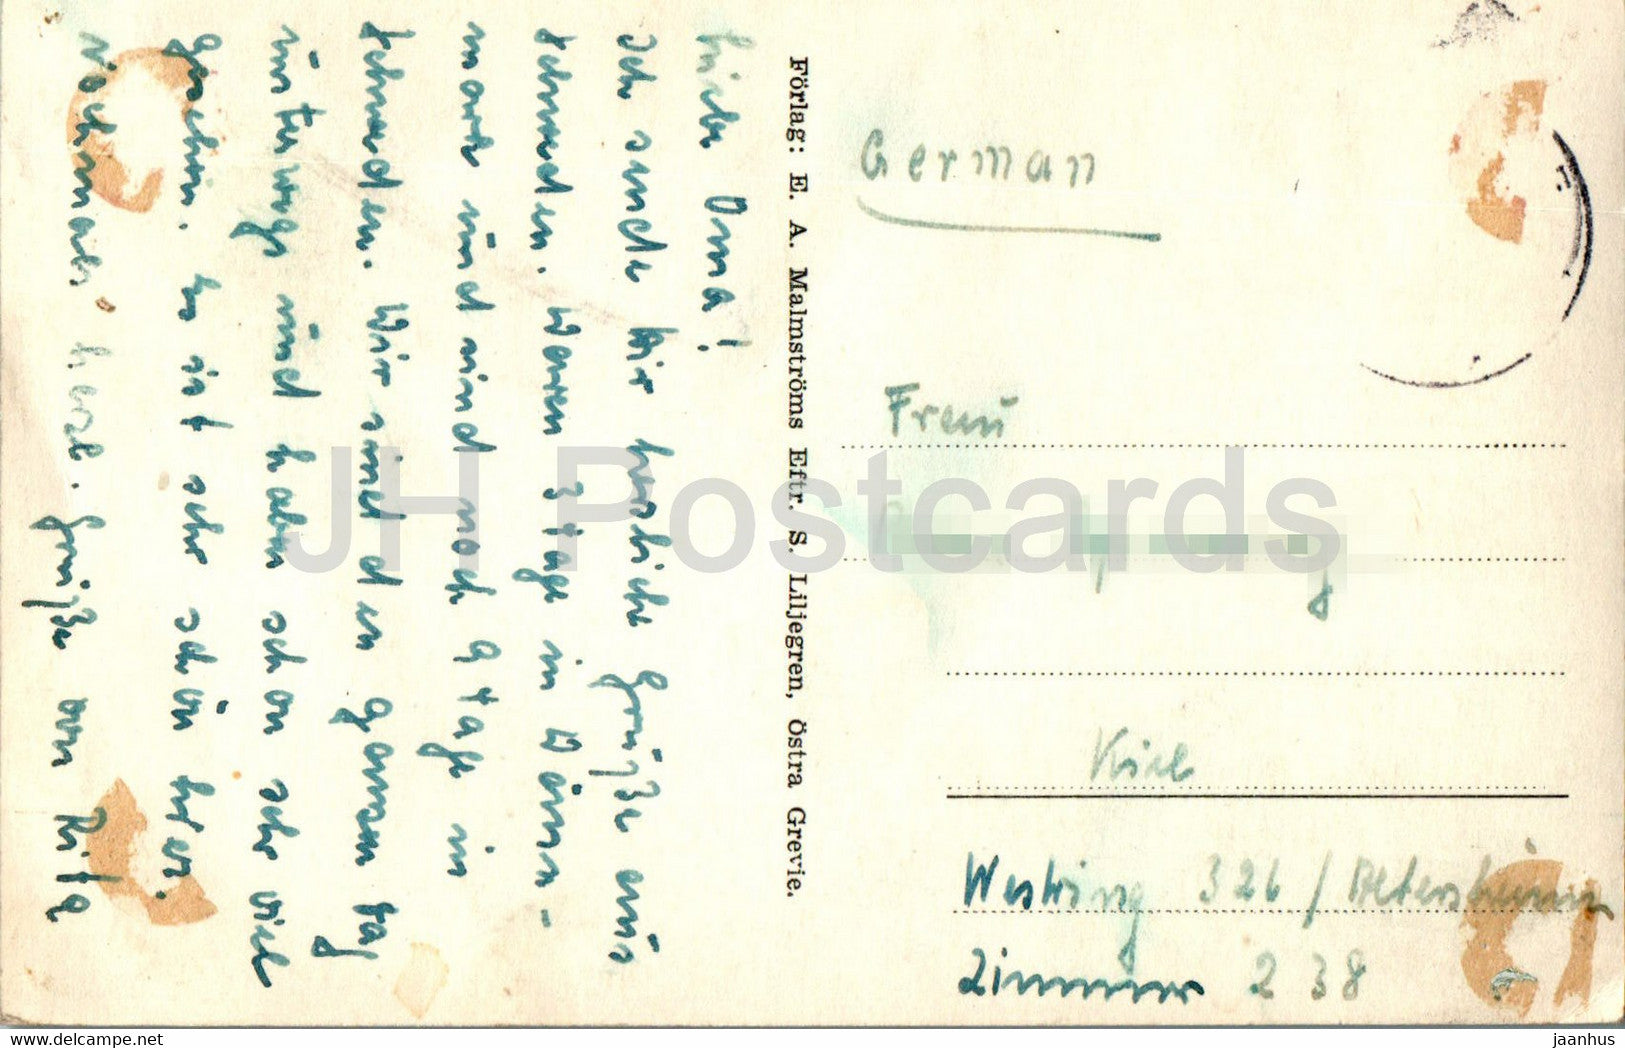 Liebe Oma!
Ich sende Dir herzliche Grüße aus
Schweden. Waren 3 Tage in Däne-
mark und sind noch 9 Tage in
Schweden. Wir sind den ganzen Tag
unterwegs und haben schon sehr viel
gesehen. Es ist sehr schön hier.
Nochmals herzl. Grüße von
Förlag: E. A. Malmströms Eftr. S. Liljegren, Östra Grevie.
German
Frau
Kiel
Westring 326 / Altersheim
Zimmer 238
JH Postcards
delcampe.net
jaanhus